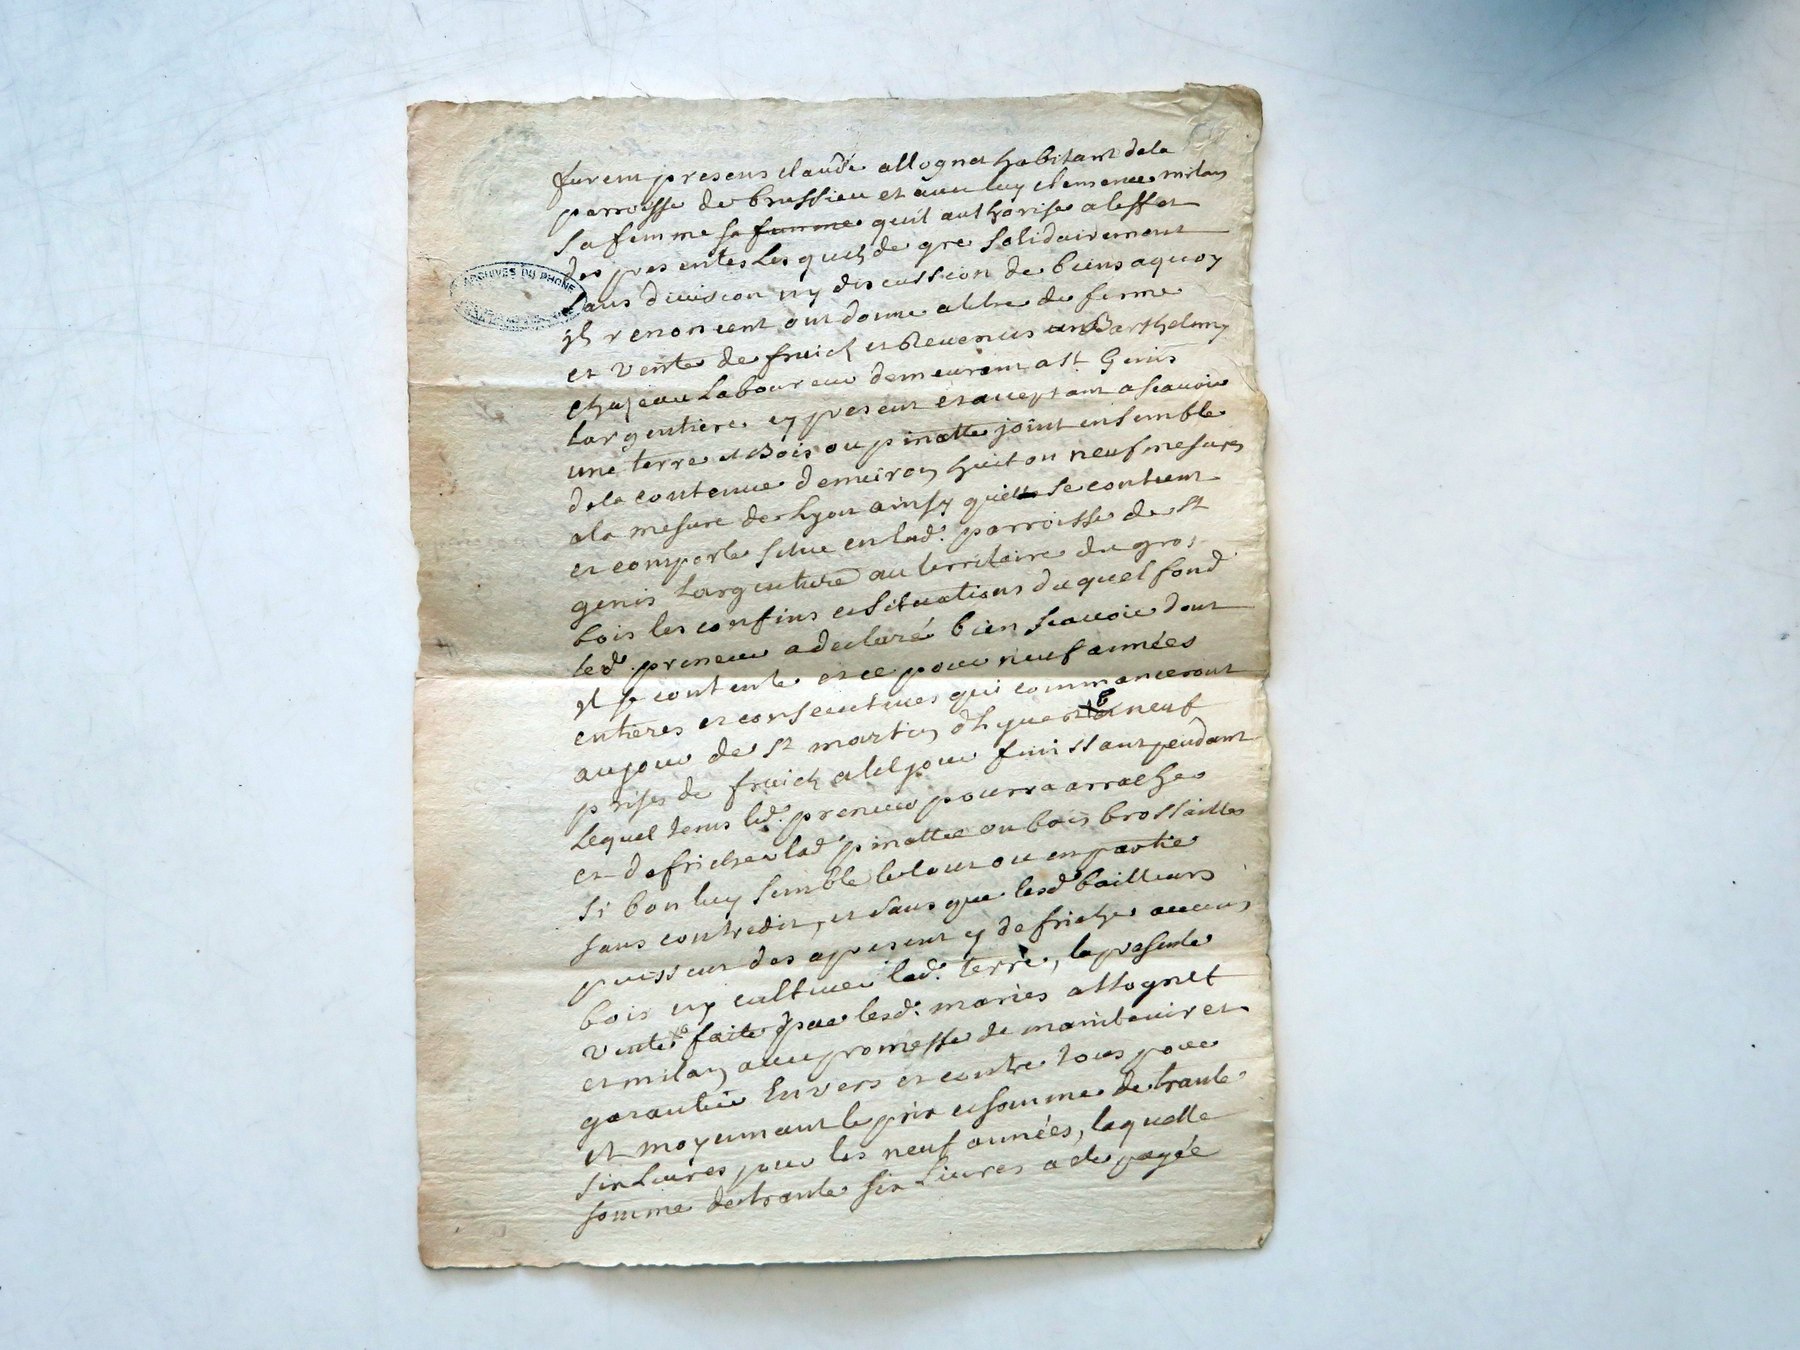 furent presens claude allognet habitant dela
parroisse de brussieu et avec luy clemence milan
sa femme sa femme quil authorise a leffet
des presentes lesquels de gre solidairement
sans division ny discussion de biens aquoy
ils renoncent ont donne a tiltre de ferme
et vente de fruicts et Revenus a Barthelemy
laboureur demeurant a st Genis
Largentiere cy present et acceptant a scavoir
une terre et Bois ou pinatte joint ensemble
dela contenue demviron huit ou neuf mesures
ala mesure de Lyon ainsy quelle se contient
et comporte situe en lad. parroisse de st
genis Largentiere au territoire du gros
bois les confins et situations duquel fond
led. preneur a declaré bien scavoir dont
il se contente et ce pour neuf années
entieres et consecutives qui commanceront
au jour de st martin dhyver neuf
prises de fruicts a tel jour finissant pendant
Lequel tems led. preneur pourra arracher
et defricher lad. pinattee ou bois brossailles
si bon luy semble le tout ou en partie
sans contredit, et sans que lesd. bailleurs
puissent des apresent y defricher aucuns
bois ny cultiver lad. terre, la presente
vente faite par lesd. mariés allognet
et milan avec promesse de maintenir et
garantir Envers et contre tous pour
et moyennant le prix et somme de trante
six Livres pour les neuf années, laquelle
somme de trante six Livres a ete payée
ARCHIVES DU RHONE